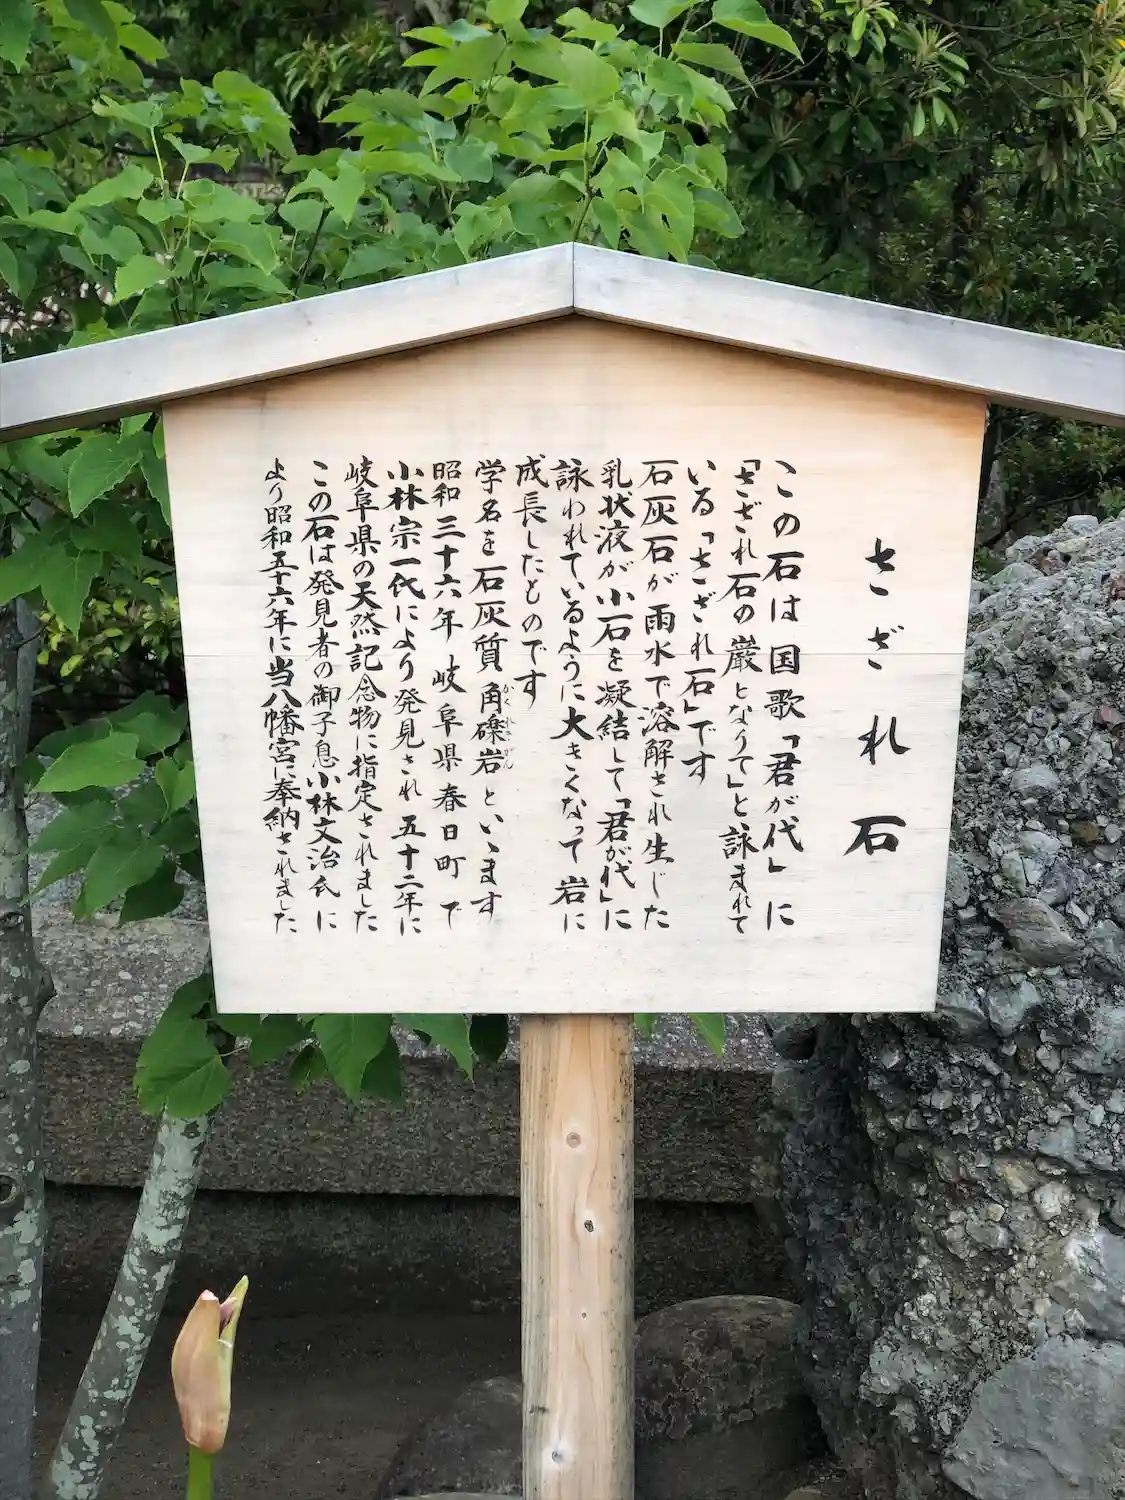 さざれ石
この石は国歌「君が代」に
「さざれ石の巌となりて」と詠まれて
いる「さざれ石」です
石灰石が雨水で溶解され生じた
乳状液が小石を凝結して「君が代」に
詠われているように大きくなって岩に
成長したものです
学名を石灰質角礫岩といいます
かくれきがん
昭和三十六年岐阜県春日町で
小林宗一代により発見され五十二年に
岐阜県の天然記念物に指定されました
この石は発見者の御子息小林文治氏に
より昭和五十六年に当八幡宮に奉納されました